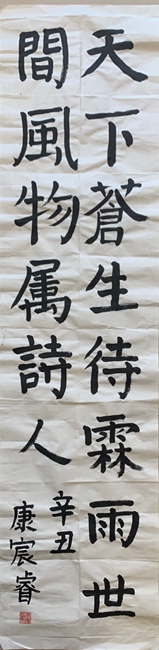 天下蒼生待霖雨世
間風物属詩人
辛丑
康宸睿